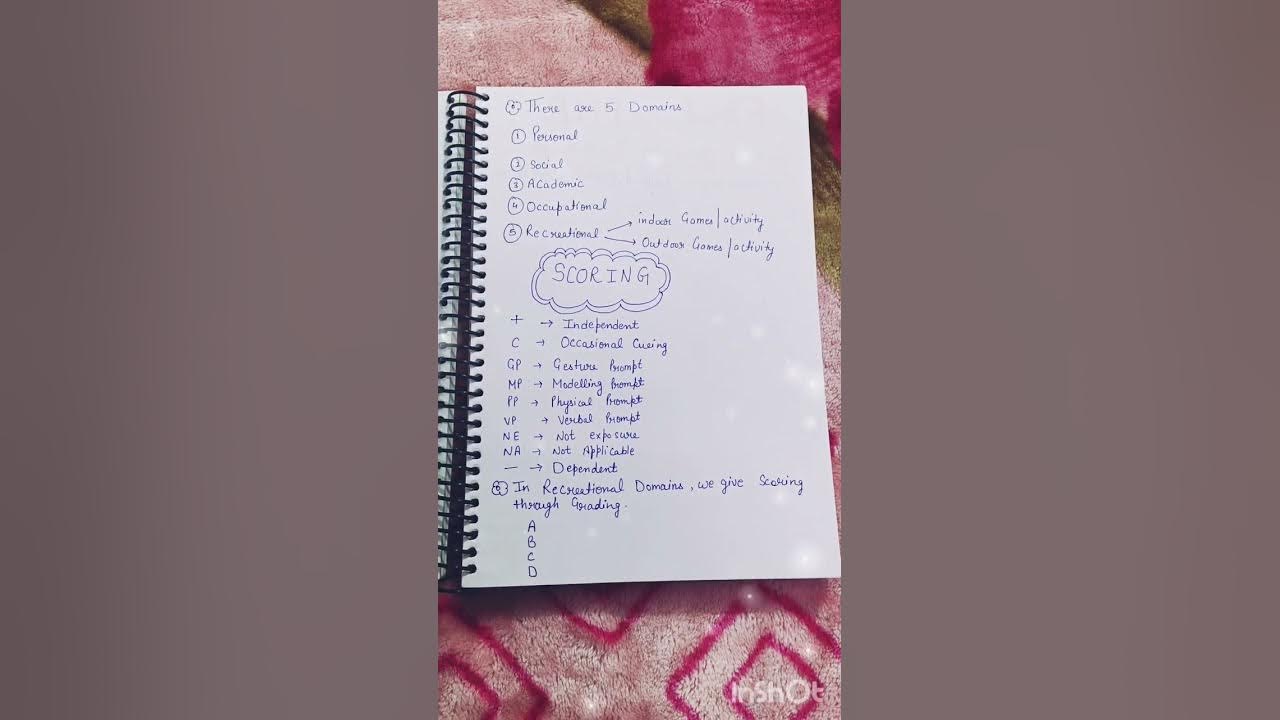 There are 5 Domains
① Personal
② Social
③ Academic
④ Occupational
⑤ Recreational → indoor Games/activity
→ Outdoor Games/activity
SCORING
+ → Independent
C → Occasional Cueing
GP → Gesture Prompt
MP → Modelling Prompt
PP → Physical Prompt
VP → Verbal Prompt
NE → Not exposure
NA → Not Applicable
— → Dependent
In Recreational Domains, we give Scoring
through Grading.
A
B
C
D
InShOt